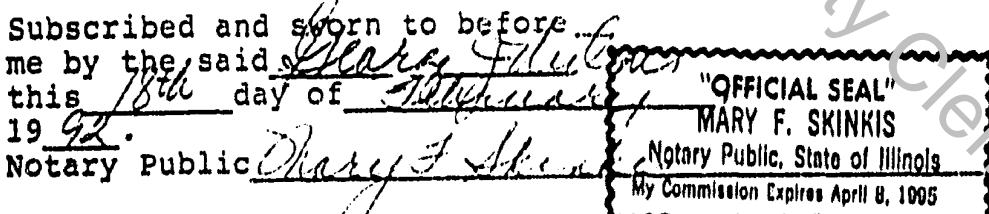 Subscribed and sworn to before
me by the said
this 18th day of February
1992.
Notary Public Mary F Skinkis
"OFFICIAL SEAL"
MARY F. SKINKIS
Notary Public, State of Illinois
My Commission Expires April 8, 1995